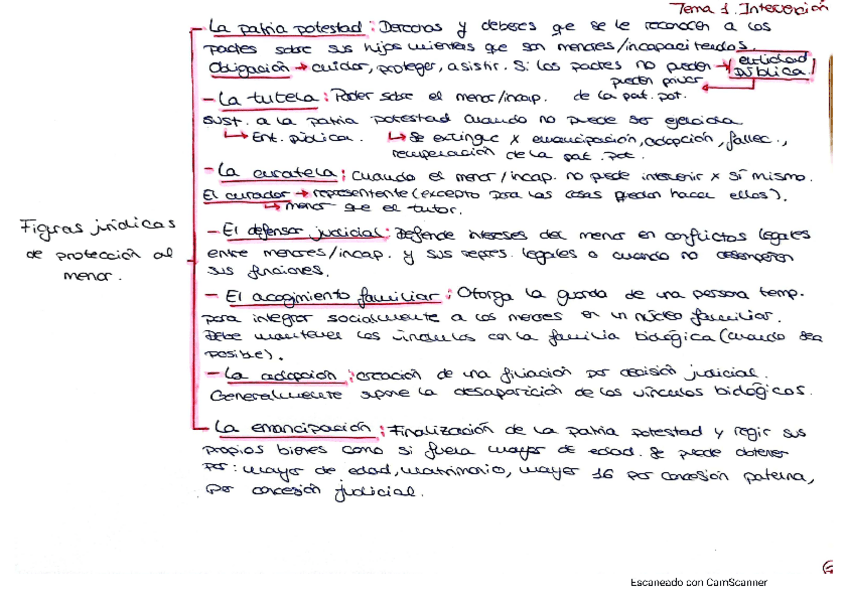 Tema 1. Intervención
- La patria potestad: Derechos y deberes que se le reconocen a los
padres sobre sus hijos mientras que son menores/incapacitados.
Obligación → cuidar, proteger, asistir. Si los padres no pueden → entidad pública.
pueden privar
de la pat. pot.
- La tutela: Poder sobre el menor/incap.
sust. a la patria potestad cuando no puede ser ejercida
↳ Ent. pública. ↳ Se extingue x emancipación, adopción, fallec.,
recuperación de la pat. pot.
- La curatela: cuando el menor/incap. no puede intervenir x sí mismo.
El curador → representante (excepto para las cosas puedan hacer ellos).
↳ menor que el tutor.
Figuras jurídicas
de protección al
menor.
- El defensor judicial: Defiende intereses del menor en conflictos legales
entre menores/incap. y sus repres. legales o cuando no desempeñen
sus funciones.
- El acogimiento familiar: Otorga la guarda de una persona temp.
para integrar socialmente a los menores en un núcleo familiar.
Debe mantener los vínculos con la familia biológica (cuando sea
posible).
- La adopción: creación de una filiación por decisión judicial.
Generalmente supone la desaparición de los vínculos biológicos.
- La emancipación: Finalización de la patria potestad y regir sus
propios bienes como si fuera mayor de edad. Se puede obtener
por: mayor de edad, matrimonio, mayor 16 por concesión paterna,
por concesión judicial.
Escaneado con CamScanner